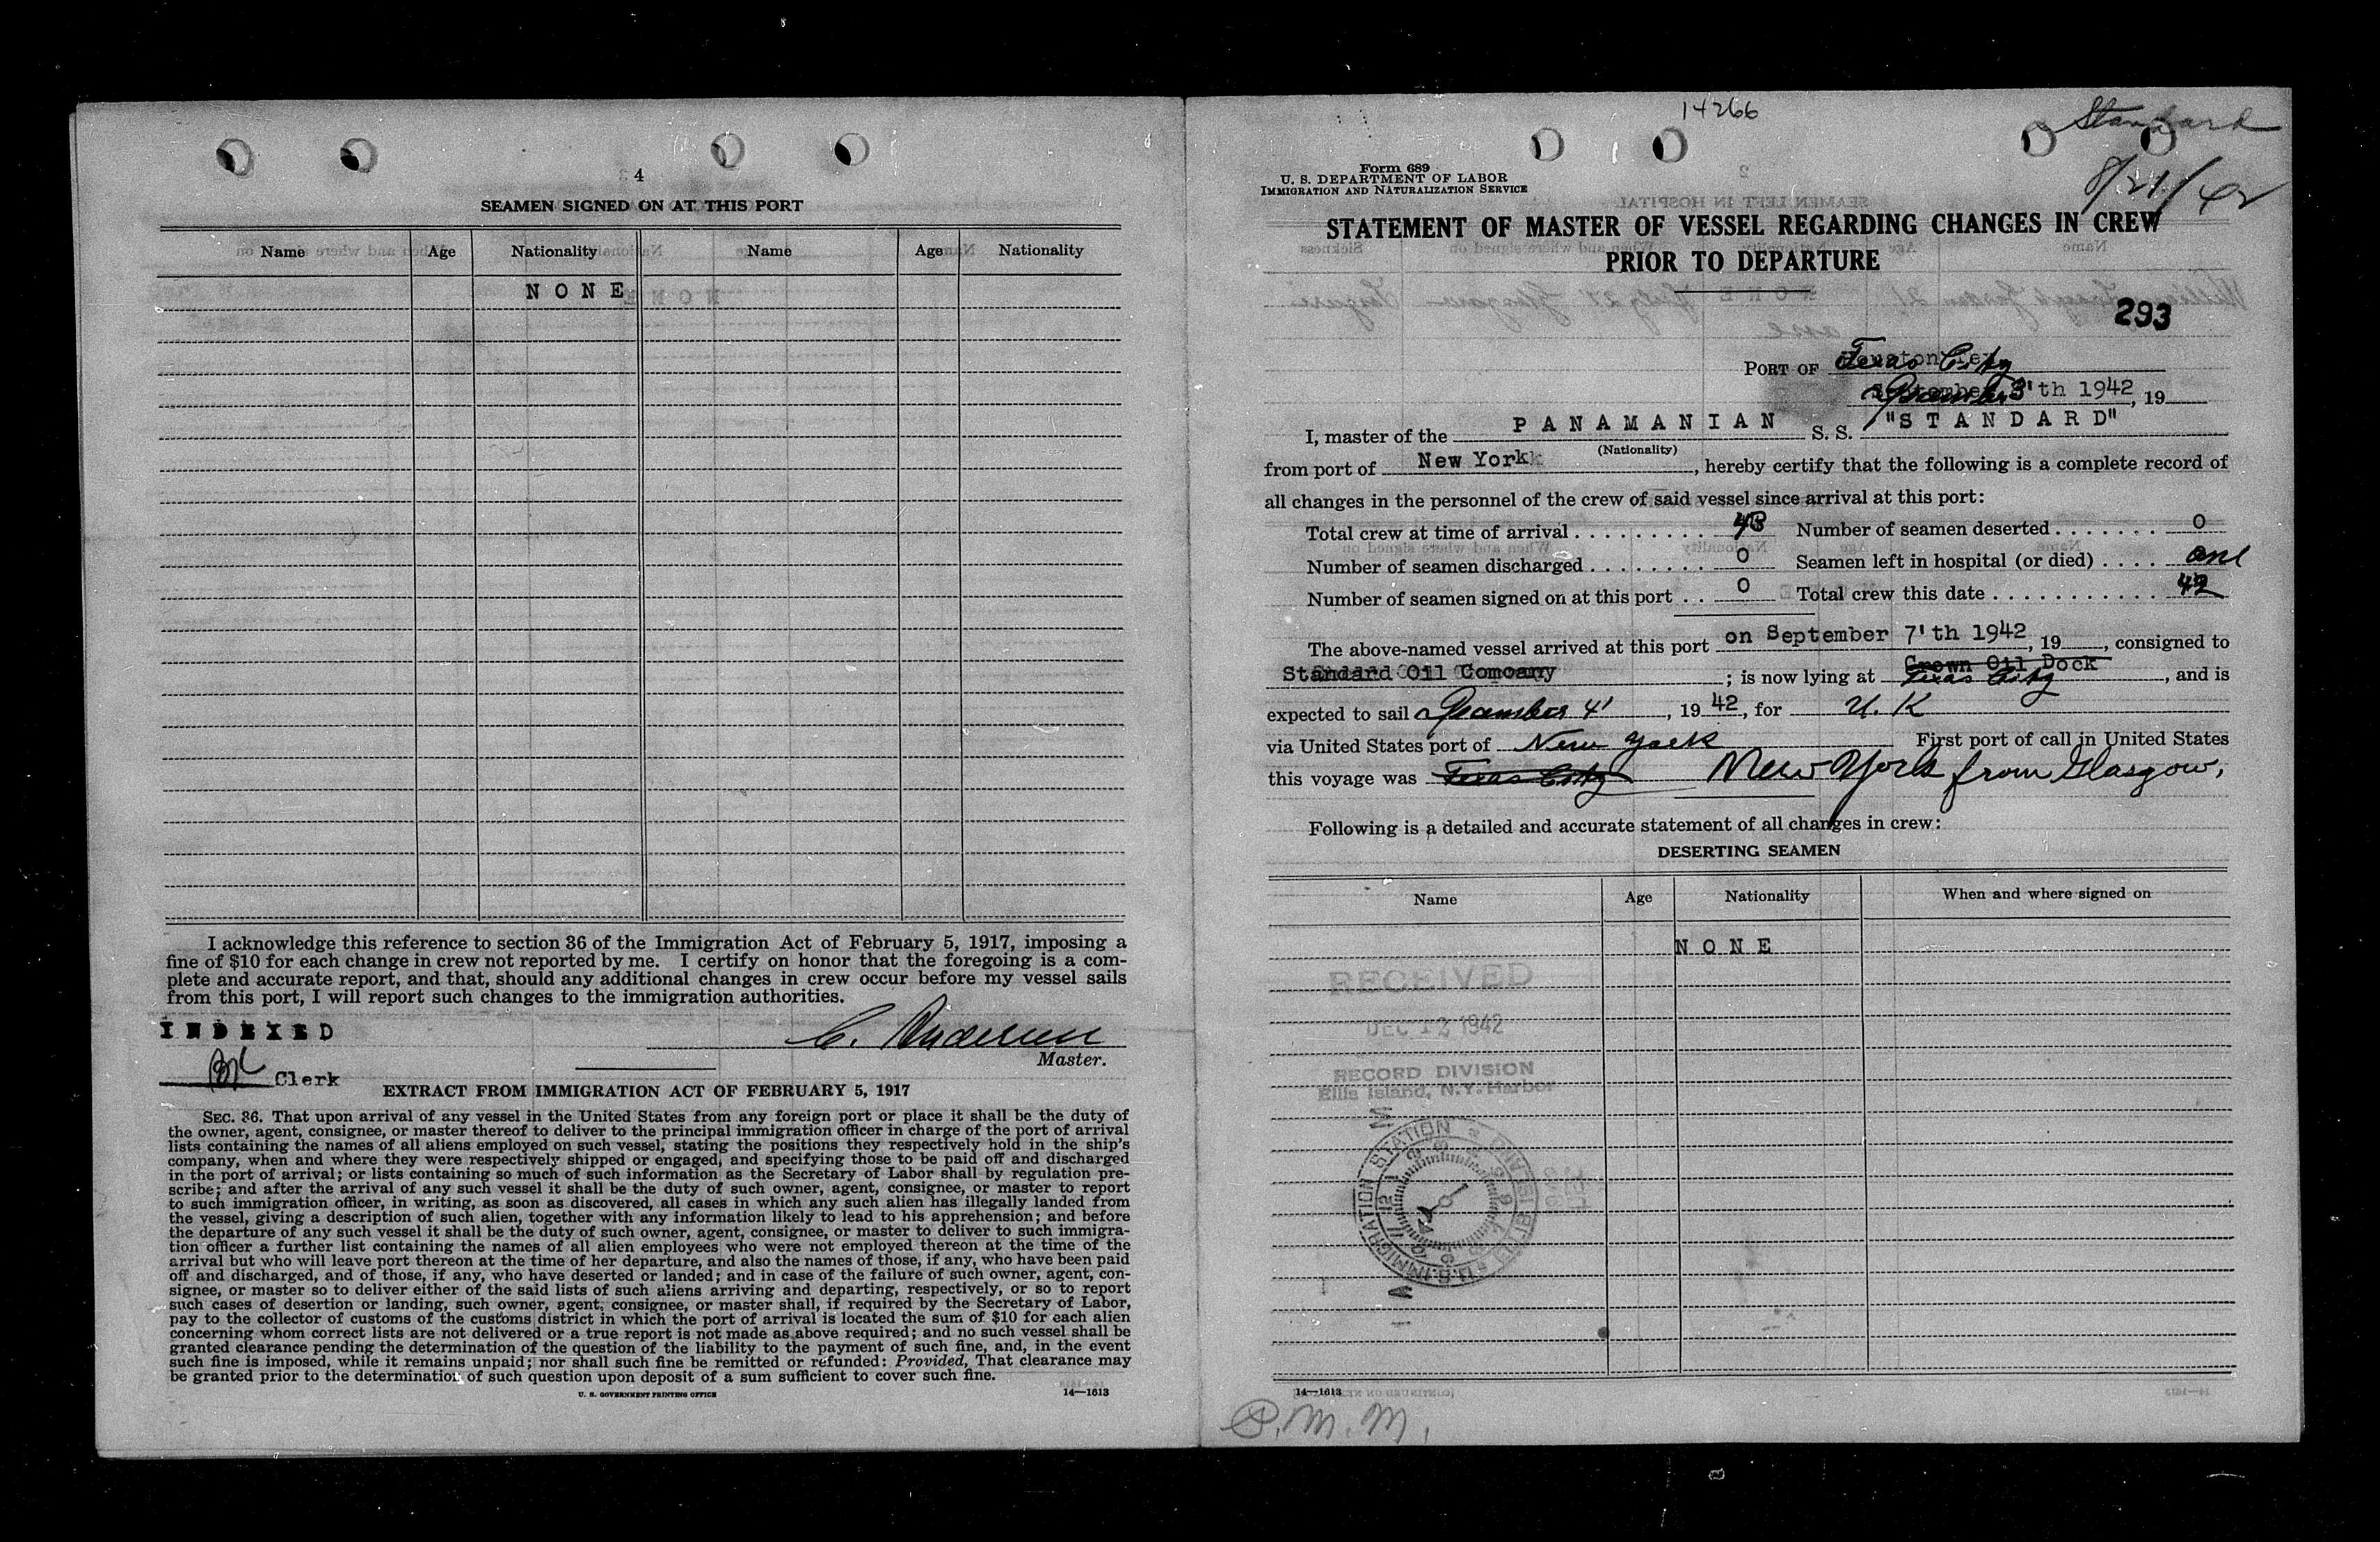 4
SEAMEN SIGNED ON AT THIS PORT
Name Age Nationality Name Age Nationality
NONE
I acknowledge this reference to section 36 of the Immigration Act of February 5, 1917, imposing a
fine of $10 for each change in crew not reported by me. I certify on honor that the foregoing is a com-
plete and accurate report, and that, should any additional changes in crew occur before my vessel sails
from this port, I will report such changes to the immigration authorities.
INDEXED
C. Andersen
Master.
Clerk
EXTRACT FROM IMMIGRATION ACT OF FEBRUARY 5, 1917
SEC. 36. That upon arrival of any vessel in the United States from any foreign port or place it shall be the duty of
the owner, agent, consignee, or master thereof to deliver to the principal immigration officer in charge of the port of arrival
lists containing the names of all aliens employed on such vessel, stating the positions they respectively hold in the ship's
company, when and where they were respectively shipped or engaged, and specifying those to be paid off and discharged
in the port of arrival; or lists containing so much of such information as the Secretary of Labor shall by regulation pre-
scribe; and after the arrival of any such vessel it shall be the duty of such owner, agent, consignee, or master to report
to such immigration officer, in writing, as soon as discovered, all cases in which any such alien has illegally landed from
the vessel, giving a description of such alien, together with any information likely to lead to his apprehension; and before
the departure of any such vessel it shall be the duty of such owner, agent, consignee, or master to deliver to such immigra-
tion officer a further list containing the names of all alien employees who were not employed thereon at the time of the
arrival but who will leave port thereon at the time of her departure, and also the names of those, if any, who have been paid
off and discharged, and of those, if any, who have deserted or landed; and in case of the failure of such owner, agent, con-
signee, or master so to deliver either of the said lists of such aliens arriving and departing, respectively, or so to report
such cases of desertion or landing, such owner, agent, consignee, or master shall, if required by the Secretary of Labor,
pay to the collector of customs of the customs district in which the port of arrival is located the sum of $10 for each alien
concerning whom correct lists are not delivered or a true report is not made as above required; and no such vessel shall be
granted clearance pending the determination of the question of the liability to the payment of such fine, and, in the event
such fine is imposed, while it remains unpaid; nor shall such fine be remitted or refunded: Provided, That clearance may
be granted prior to the determination of such question upon deposit of a sum sufficient to cover such fine.
U. S. GOVERNMENT PRINTING OFFICE 14—1613
14266
Standard
8/21/42
Form 689
U. S. DEPARTMENT OF LABOR
IMMIGRATION AND NATURALIZATION SERVICE
STATEMENT OF MASTER OF VESSEL REGARDING CHANGES IN CREW
PRIOR TO DEPARTURE
293
PORT OF Texas City
3'th 1942, 19
I, master of the PANAMANIAN S. S. "STANDARD"
(Nationality)
from port of New York, hereby certify that the following is a complete record of
all changes in the personnel of the crew of said vessel since arrival at this port:
Total crew at time of arrival 43 Number of seamen deserted 0
Number of seamen discharged 0 Seamen left in hospital (or died) one
Number of seamen signed on at this port 0 Total crew this date 42
The above-named vessel arrived at this port on September 7'th 1942, 19, consigned to
Standard Oil Comoany; is now lying at Crown Oil Dock Texas City, and is
expected to sail 4', 19 42, for U. K
via United States port of New York First port of call in United States
this voyage was Texas City New York from Glasgow,
Following is a detailed and accurate statement of all changes in crew:
DESERTING SEAMEN
Name Age Nationality When and where signed on
NONE
RECEIVED
DEC 12 1942
RECORD DIVISION
Ellis Island, N.Y. Harbor
14—1613
P. M. M.